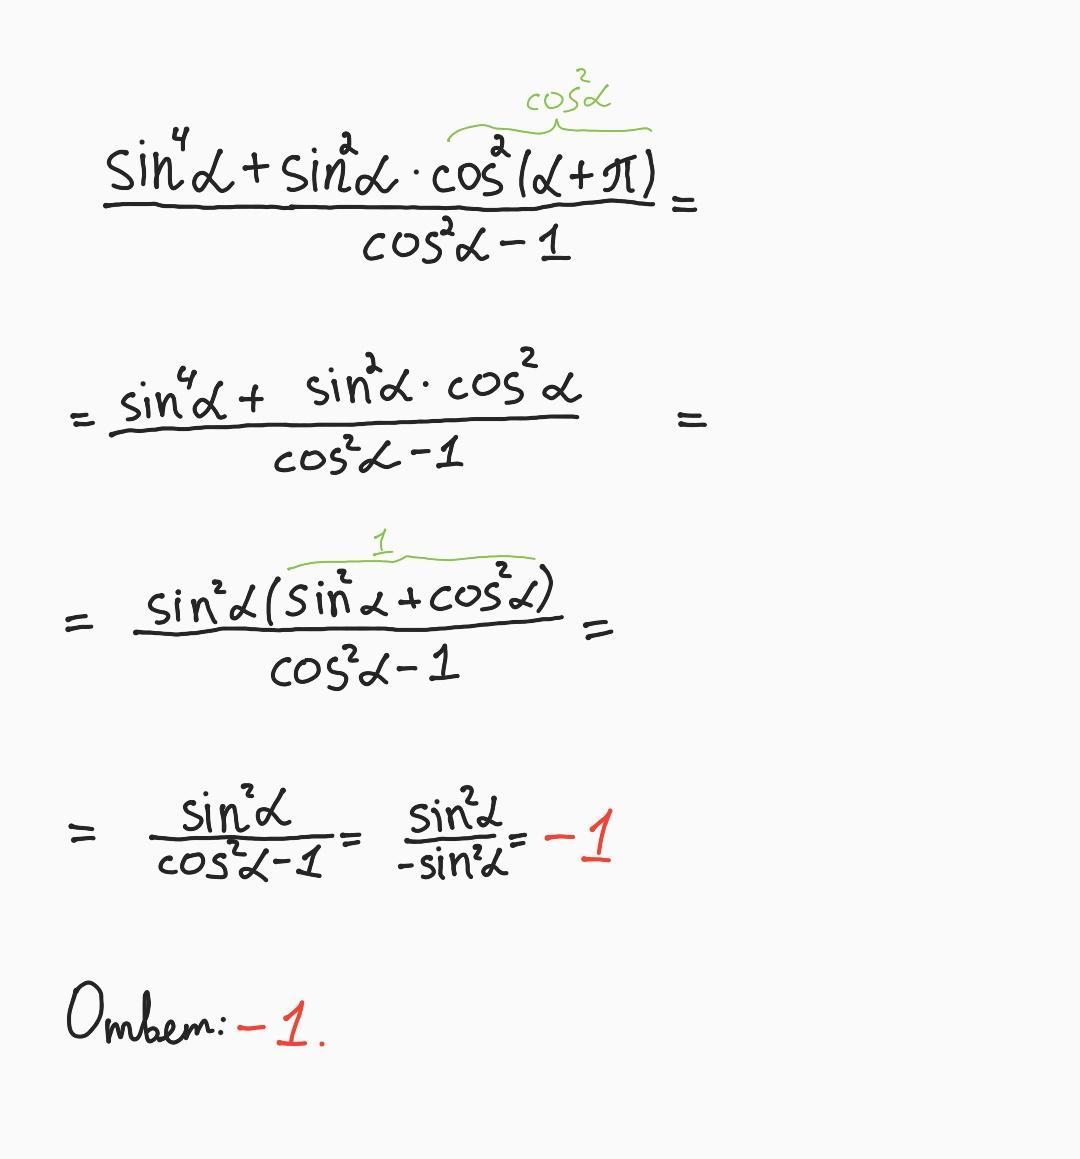 cos²α
sin⁴α + sin²α · cos²(α + π) =
cos²α − 1
= sin⁴α + sin²α · cos²α =
cos²α − 1
1
= sin²α (sin²α + cos²α) =
cos²α − 1
= sin²α / cos²α − 1 = sin²α / −sin²α = −1
Ответ: −1.